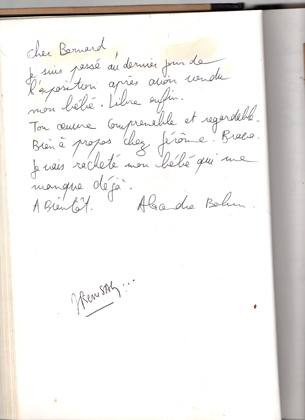 Cher Bernard,
Je suis passé au dernier jour de
l'exposition après avoir vendu
mon bébé. Libre enfin.
Ton œuvre compréhensible et regardable.
Bien à propos chez Jérôme. Bravo.
Je vais racheter mon bébé qui me
manque déjà.
A Bientôt. Alexandre